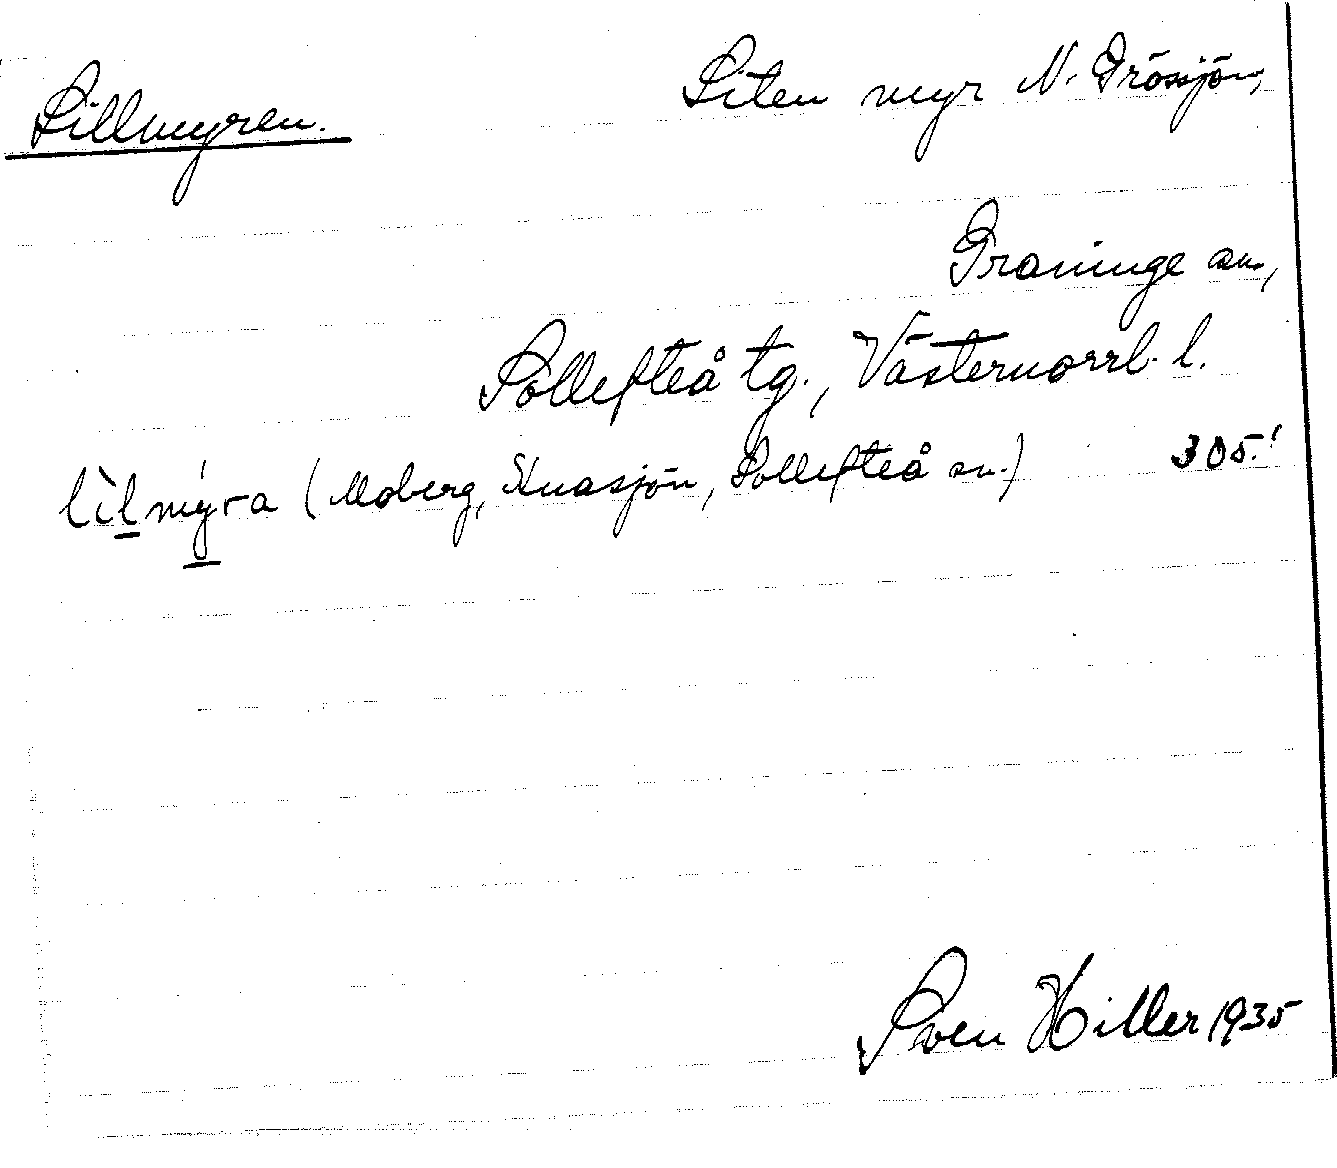 Lillmyren. Liten myr N. Grössjön,
Graninge sn.,
Sollefteå tg., Västernorrl. l.
lìlmýra (Moberg, Knasjön, Sollefteå sn.) 305.!
Sven Hiller 1935